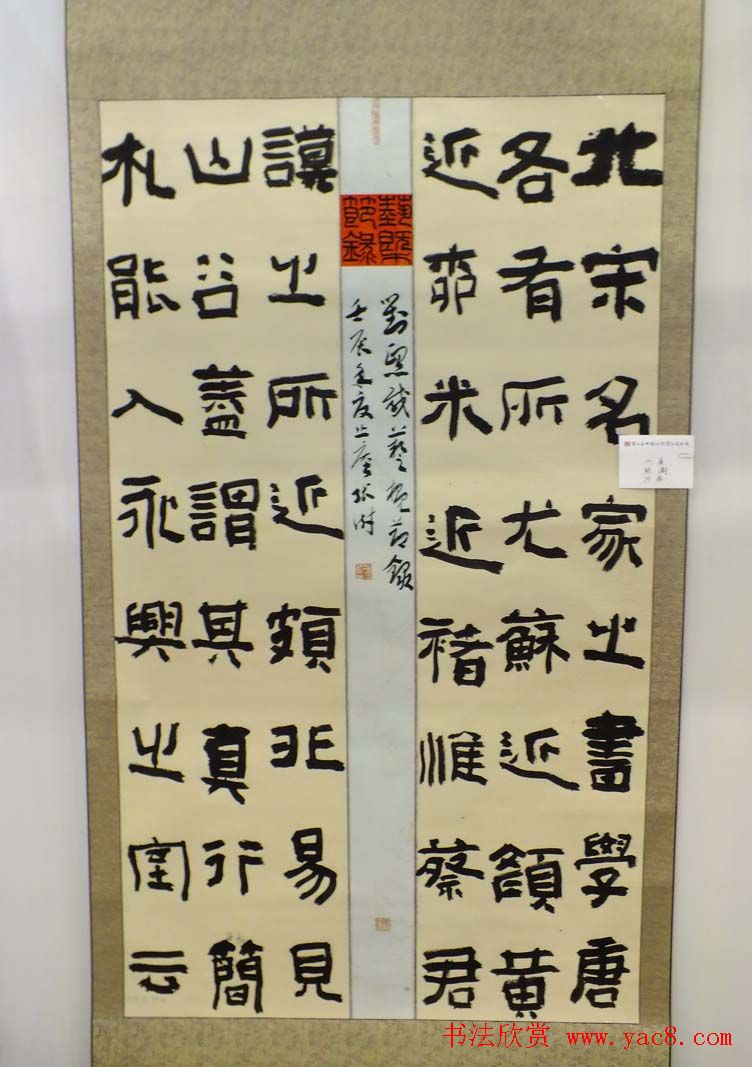 北宋名家之書學唐
各有所尤蘇近顏黃
近柳米近褚惟蔡君
謨之所近頗非易見
山谷蓋謂其真行簡
札能入永興之室云
藝概
節錄
劉熙載藝概節錄
壬辰年夏止庵張
书法欣赏 www.yac8.com